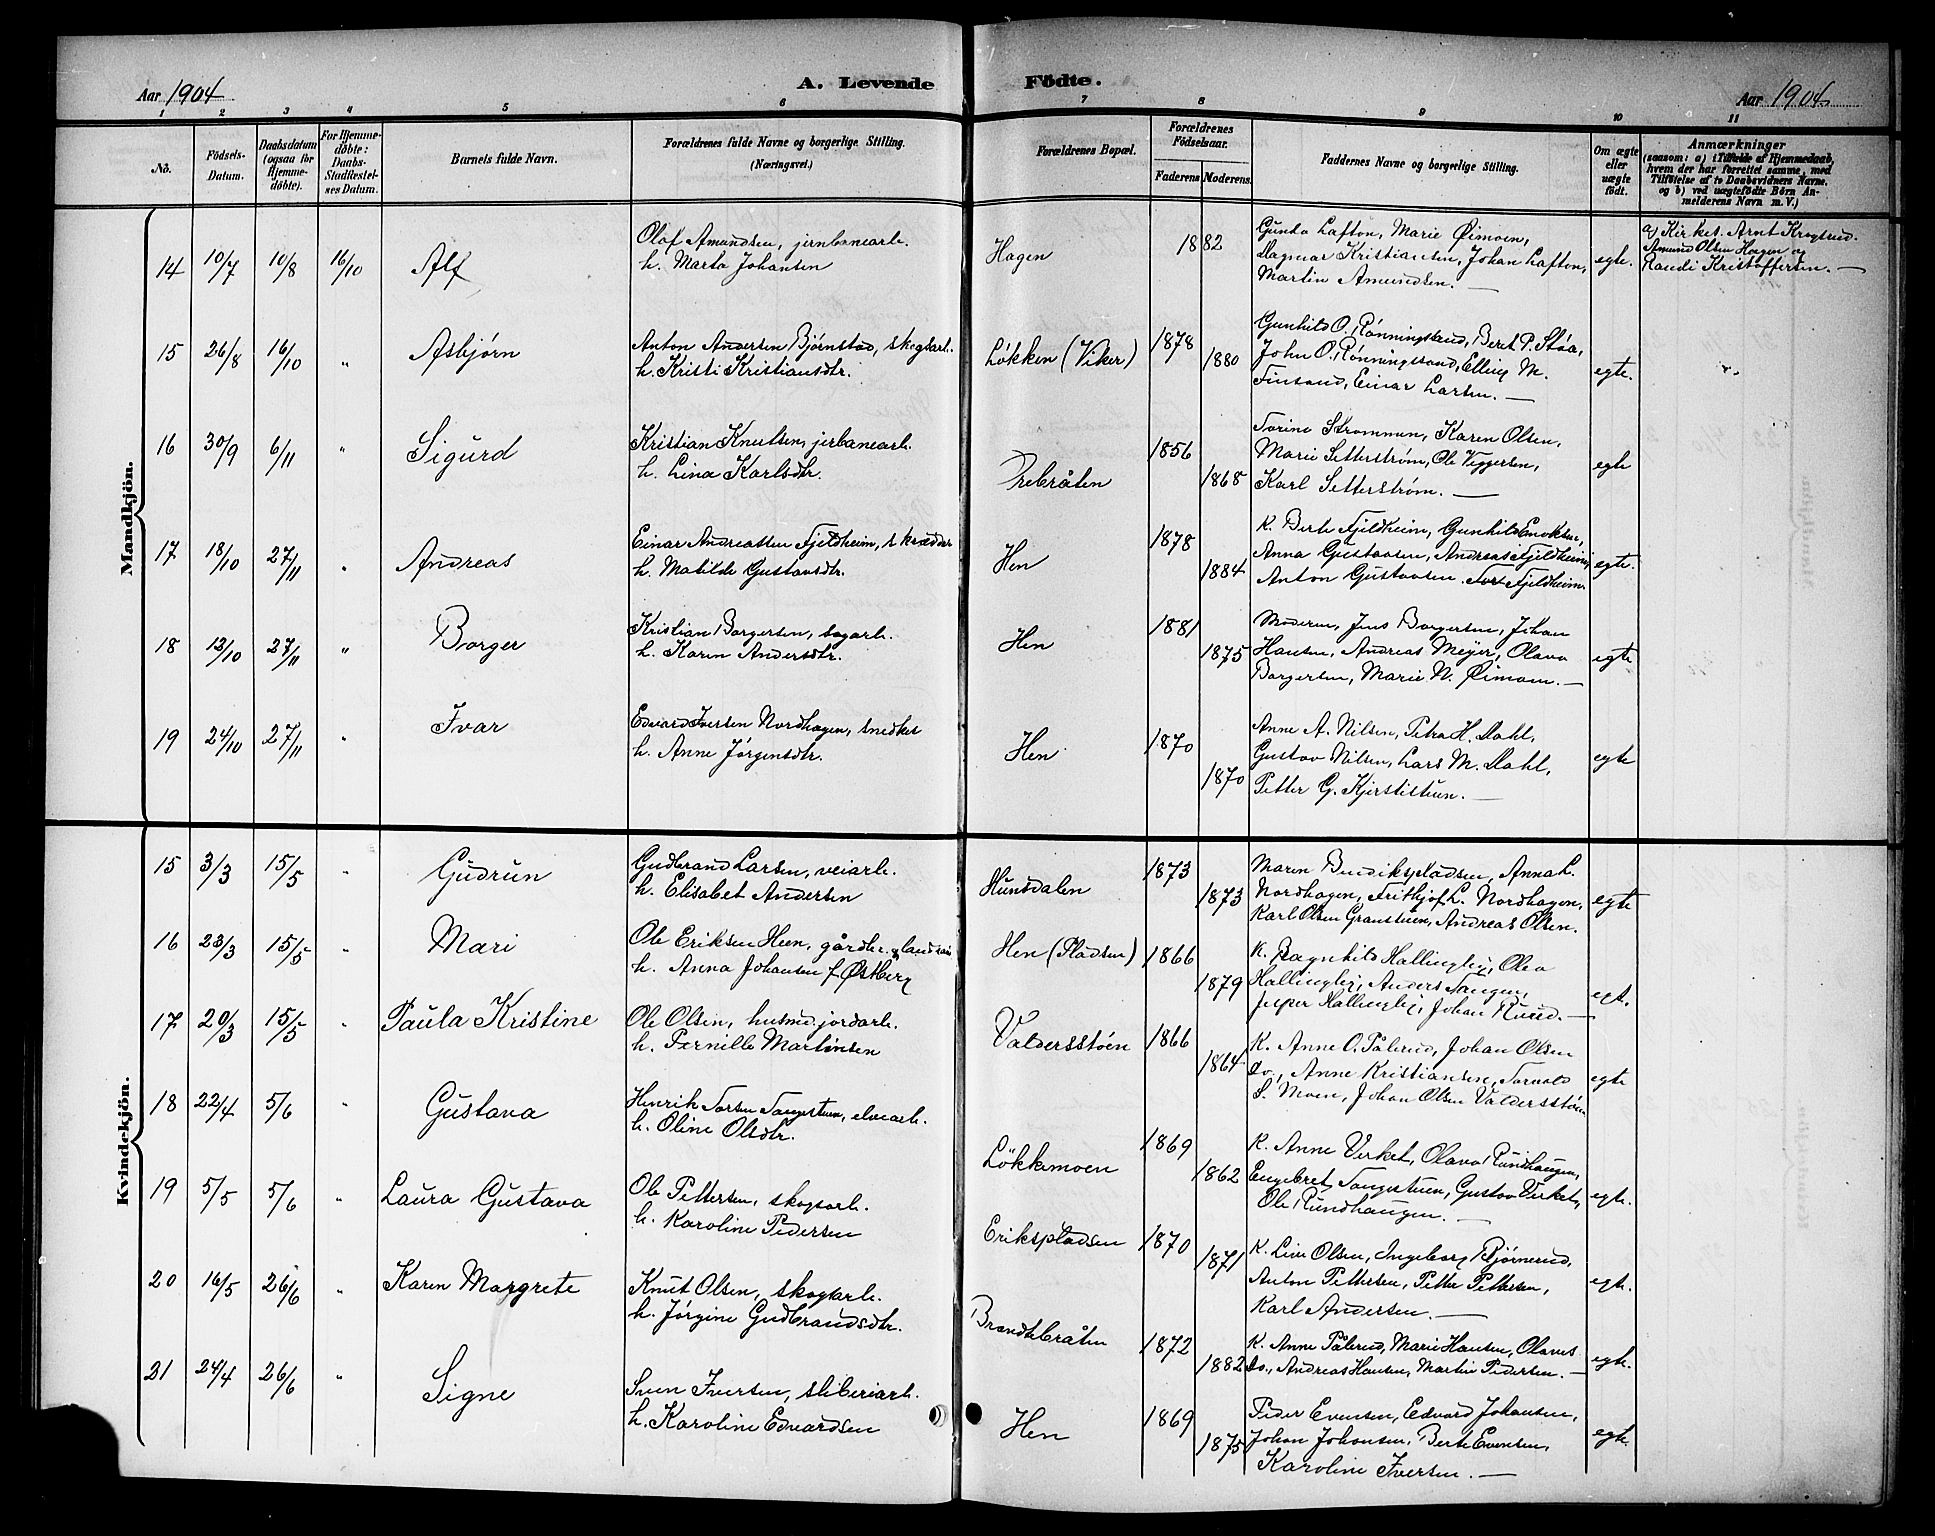 Aar 1904
A. Levende
Födte.
Aar 1904
1 2 3 4 5 6 7 8 9 10 11
No.
Födsels-Datum.
Daabsdatum (ogsaa för Hjemmedöbte).
For Hjemmedöbte: Daabs-Stadfæstelses Datum.
Barnets fulde Navn.
Forældrenes fulde Navne og borgerlige Stilling. (Næringsvei.)
Forældrenes Bopæl.
Forældrenes Födselsaar.
Faderens Moderens
Faddernes Navne og borgerlige Stilling.
Om ægte eller uægte födt.
Anmærkninger
(saasom: a) i Tilfælde af Hjemmedaab, hvem der har forrettet samme, med Tilföielse af to Daabsvidners Navne, og b) ved uægtefödte Börn Anmelderens Navn m. V.)
Mandkjön.
14 10/7 10/8 16/10 Alf
Olaf Amundsen, jernbanearb.
h. Marta Johansen
Hagen 1882
Gunda Lafton, Marie Øimoen,
Dagmar Kristiansen, Johan Lafton,
Martin Amundsen. —
egte.
a) Kirkes. Arnt Krogsrud.
Amund Olsen Hagen og
Randi Kristoffersen. —
15 26/8 16/10 " Asbjørn
Anton Andersen Bjørnstad, skogsarb.
h. Kristi Kristiansdtr.
Løkken (Viker) 1878 1880
Gunhild O. Rønningsand, Beret P. Støa,
John O. Rønningsand, Elling M.
Finsand, Einar Larsen. —
egte.
16 30/9 6/11 " Sigurd
Kristian Knutsen, jerbanearb.
h. Lina Karlsdtr.
Prebråten 1856 1868
Torine Strømmen, Karen Olsen,
Marie Setterstrøm, Ole Viggersen,
Karl Setterstrøm. —
egte
17 18/10 27/11 " Andreas
Einar Andreassen Fjeldheim, skrædder
h. Matilde Gustavsdtr.
Hen 1878 1884
K. Berte Fjeldheim, Gunhild Enoksen,
Anna Gustavsen, Andreas Fjeldheim,
Anton Gustavsen. Tor Fjeldheim.
egte.
18 12/10 27/11 " Borger
Kristian Borgersen, sagarb.
h. Karen Andersdtr.
Hen 1881 1875
Moderen, Jens Borgersen, Johan
Hansen, Andreas Meyer, Olava
Borgersen, Marie N. Øimoen. —
egte
19 24/10 27/11 " Ivar
Edvard Iversen Nordhagen, snedker
h. Anne Jørgensdtr.
Hen 1870 1870
Anne A. Nilsen, Petra H. Dahl,
Gustav Nilsen, Lars M. Dahl,
Petter G. Kjerstistuen. —
egte
Kvindekjön.
15 3/3 15/5 " Gudrun
Gudbrand Larsen, veiarb.
h. Elisabet Andersen
Hunsdalen 1873 1873
Maren Bendikspladsen, Anna L.
Nordhagen, Frithjof L. Nordhagen,
Karl Olsen Granstuen, Andreas Olsen.
egte
16 23/3 15/5 " Mari
Ole Eriksen Heen, gårdbr.
h. Anna Johansen f. Østberg
Hen (Pladsen) 1866 1879
K. Ragnhild Hallingby, Olea
Hallingby, Anders Tangen,
Jesper Hallingby, Johan Ruud. —
egt.
17 20/3 15/5 " Paula Kristine
Ole Olsen, husmd. jordarb.
h. Pernille Martinsen
Valdersstøen 1866 1864
K. Anne O. Pålerud, Johan Olsen
do., Anne Kristiansen, Torvald
S. Moen, Johan Olsen Valdersstøen
egte
18 22/4 5/6 " Gustava
Henrik Torsen Tangestuen, elvearb.
h. Oline Olsdtr.
Løkkemoen 1869 1862
K. Anne Virket, Olava Rundhaugen,
Engebret Tangestuen, Gustav Virket,
Ole Rundhaugen. —
egte.
19 5/5 5/6 " Laura Gustava
Ole Pettersen, skogsarb.
h. Karoline Pedersen
Erikspladsen 1870 1871
K. Live Olsen, Ingeborg Bjørnerud,
Anton Pettersen, Petter Pettersen,
Karl Andersen. —
egte.
20 16/5 26/6 " Karen Margrete
Knut Olsen, skogsarb.
h. Jørgine Gudbrandsdtr.
Brændebråten 1872 1882
K. Anne Pålerud, Marie Hansen, Olaves
do., Andreas Hansen, Martin Pedersen. —
egte.
21 24/4 26/6 " Signe
Sven Iversen, sliberiarb.
h. Karoline Edvardsen
Hen 1869 1875
Peder Evensen, Edvard Johansen,
Johan Johansen, Berte Evensen,
Karoline Iversen. —
egte.